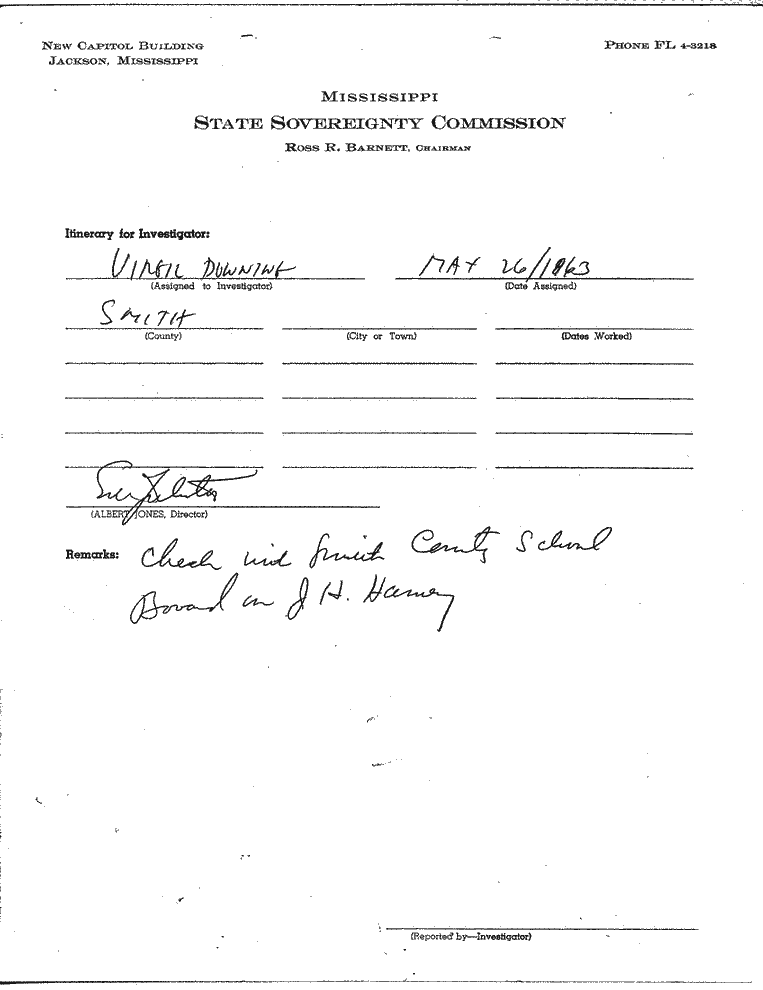 NEW CAPITOL BUILDING
JACKSON, MISSISSIPPI
PHONE FL 4-3218
MISSISSIPPI
STATE SOVEREIGNTY COMMISSION
ROSS R. BARNETT, CHAIRMAN
Itinerary for Investigator:
VIRGIL DOWNING MAY 26/1963
(Assigned to Investigator) (Date Assigned)
SMITH
(County) (City or Town) (Dates Worked)
(ALBERT JONES, Director)
Remarks: Check with Smith County School
Board on J H.
(Reported by—Investigator)